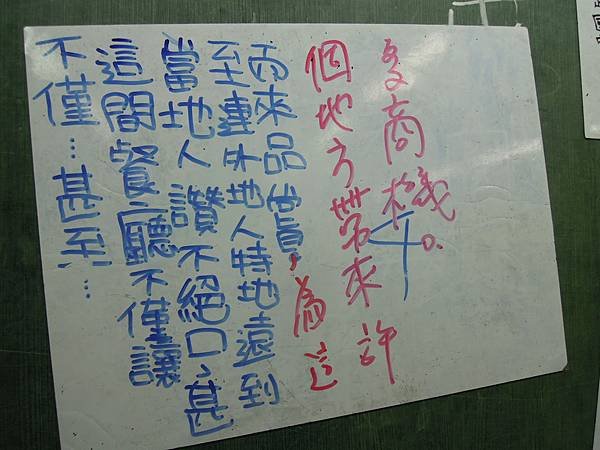 不僅…甚至…
這間餐廳不僅讓
當地人讚不絕口，甚
至連外地人特地遠到
而來品嘗，為這
個地方帶來許
多商機。